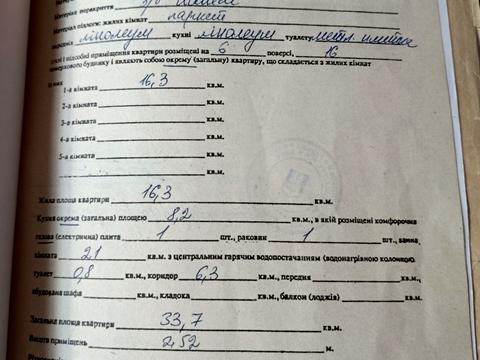 Матеріал перекриття з/б
Матеріал підлоги: жилих кімнат паркет
лінолеум кухні лінолеум туалету метл. плитка
і підсобні приміщення квартири розміщені на 6 поверсі, 16
поверхового будинку і являють собою окрему (загальну) квартиру, що складається з жилих кімнат
1-а кімната 16,3 кв.м.
2-а кімната кв.м.
3-а кімната кв.м.
4-а кімната кв.м.
5-а кімната кв.м.
кв.м.
Жила площа квартири 16,3 кв.м.
Кухня окрема (загальна) площею 8,2 кв.м., в якій розміщені комфорочна
газова (електрична) плита 1 шт., раковин 1 шт., ванна
кімната 21 кв.м. з центральним гарячим водопостачанням (водонагрівною колонкою)
туалет 0,8 кв.м., коридор 6,3 кв.м., передня кв.м.,
вбудована шафа кв.м., кладова кв.м., балкон (лоджія) кв.м.
Загальна площа квартири 33,7 кв.м.
Висота приміщень 2,52 м.